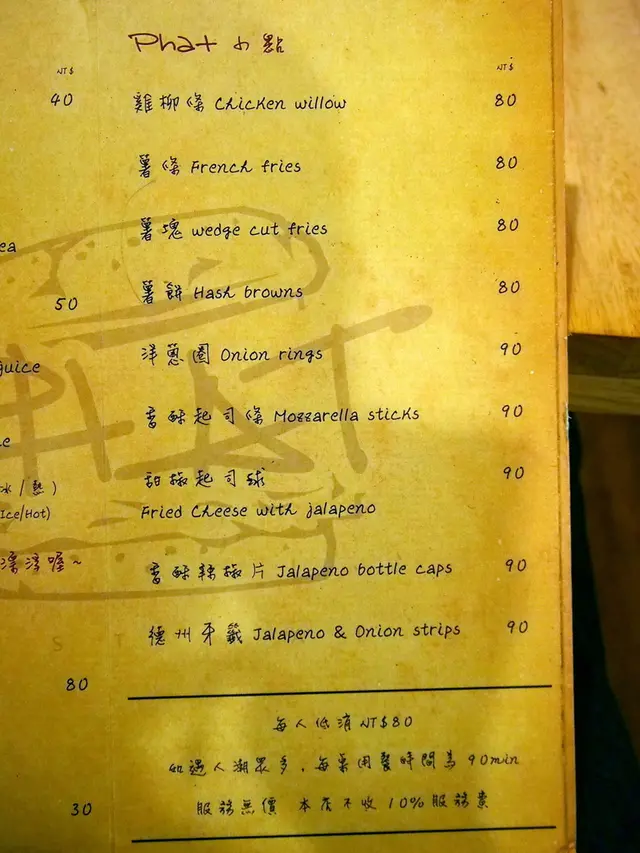 Phat 小點
NT$
NT$
40
雞柳條 Chicken willow 80
薯條 French fries 80
薯塊 wedge cut fries 80
ea
薯餅 Hash browns 80
50
洋蔥圈 Onion rings 90
juice
香酥起司條 Mozzarella sticks 90
e
甜椒起司球 90
冰/熱)
Fried Cheese with jalapeno
Ice/Hot)
香酥辣椒片 Jalapeno bottle caps 90
喔~
德州牙籤 Jalapeno & Onion strips 90
80
每人低消NT$80
如遇人潮眾多，每桌用餐時間為90min
30
服務無價 本店不收10%服務費